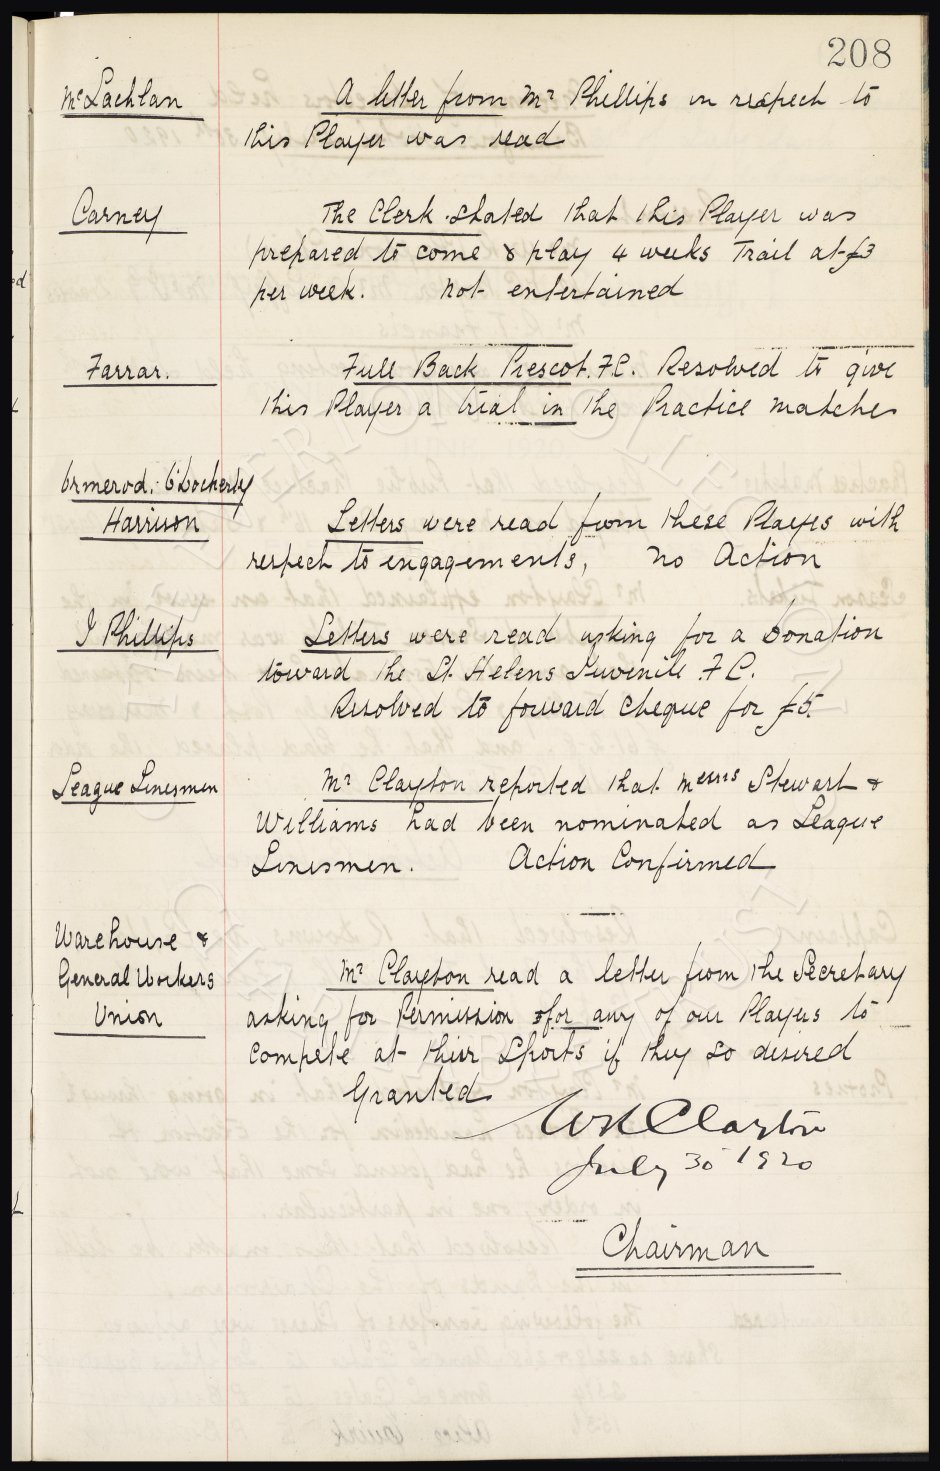 208
McLachlan A letter from Mr Phillips in respect to
this Player was read
Carney The Clerk stated that this Player was
prepared to come & play 4 weeks Trail at £3
per week. Not entertained
Farrar. Full Back Prescot. F.C. Resolved to give
this Player a trial in the Practice Matches
Ormerod. O'Docherty
Harrison Letters were read from these Players with
respect to engagements, No Action
J Phillips Letters were read asking for a Donation
toward the St. Helens Juvenile F.C.
Resolved to forward cheque for £5.
League Linesmen Mr Clayton reported that Messrs Stewart &
Williams had been nominated as League
Linesmen. Action Confirmed
Warehouse &
General Workers Mr Clayton read a letter from the Secretary
Union asking for Permission for any of our Players to
compete at their Sports if they so desired
Granted
WR Clayton
July 30 1920
Chairman